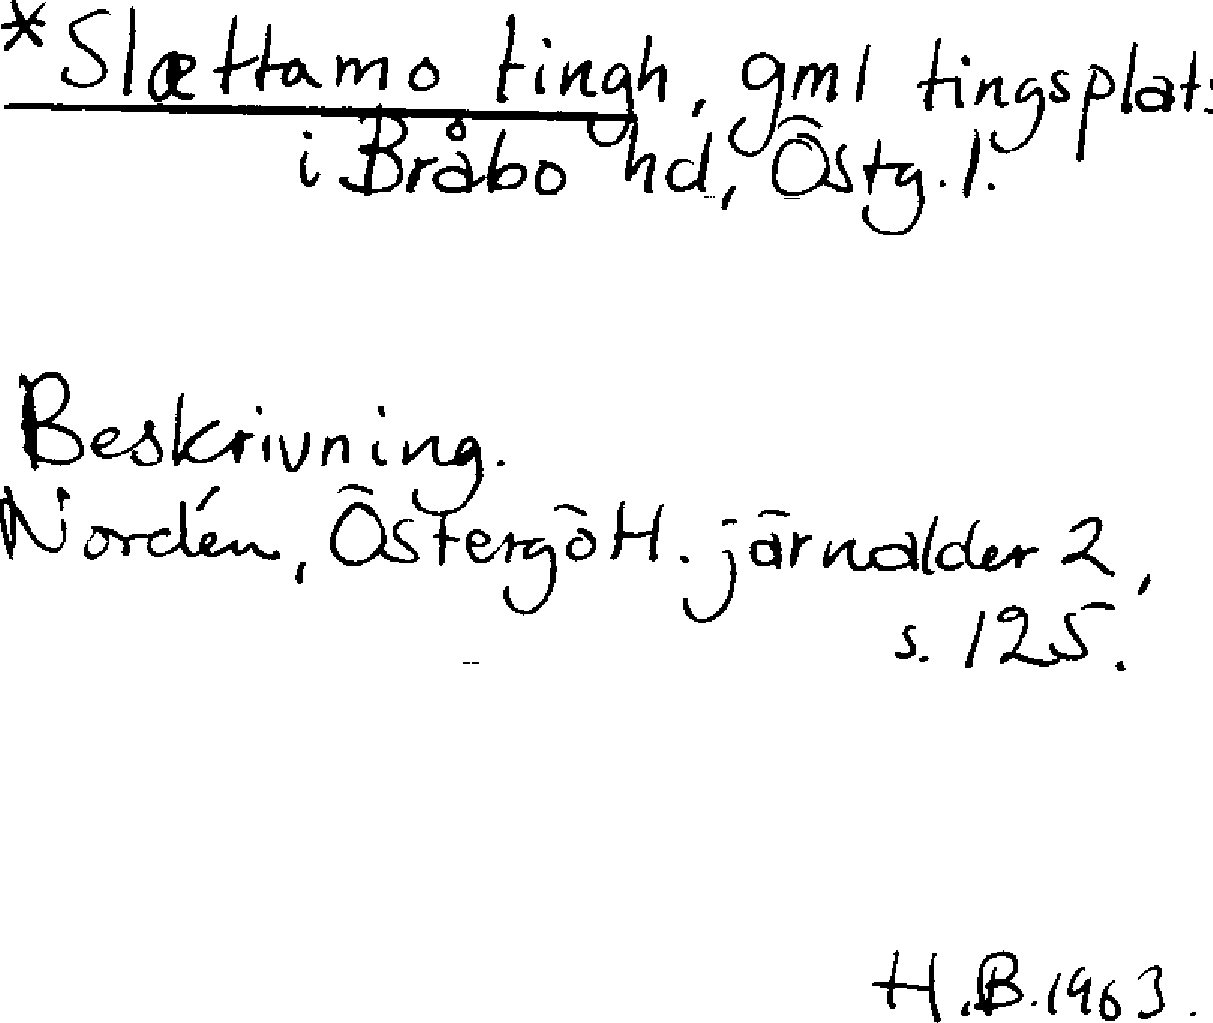 *Slættamo tingh, gml tingsplats
i Bråbo hd, Östg. l.
Beskrivning.
Nordén, Östergötl. järnålder 2,
s. 125.
H.B. 1963.